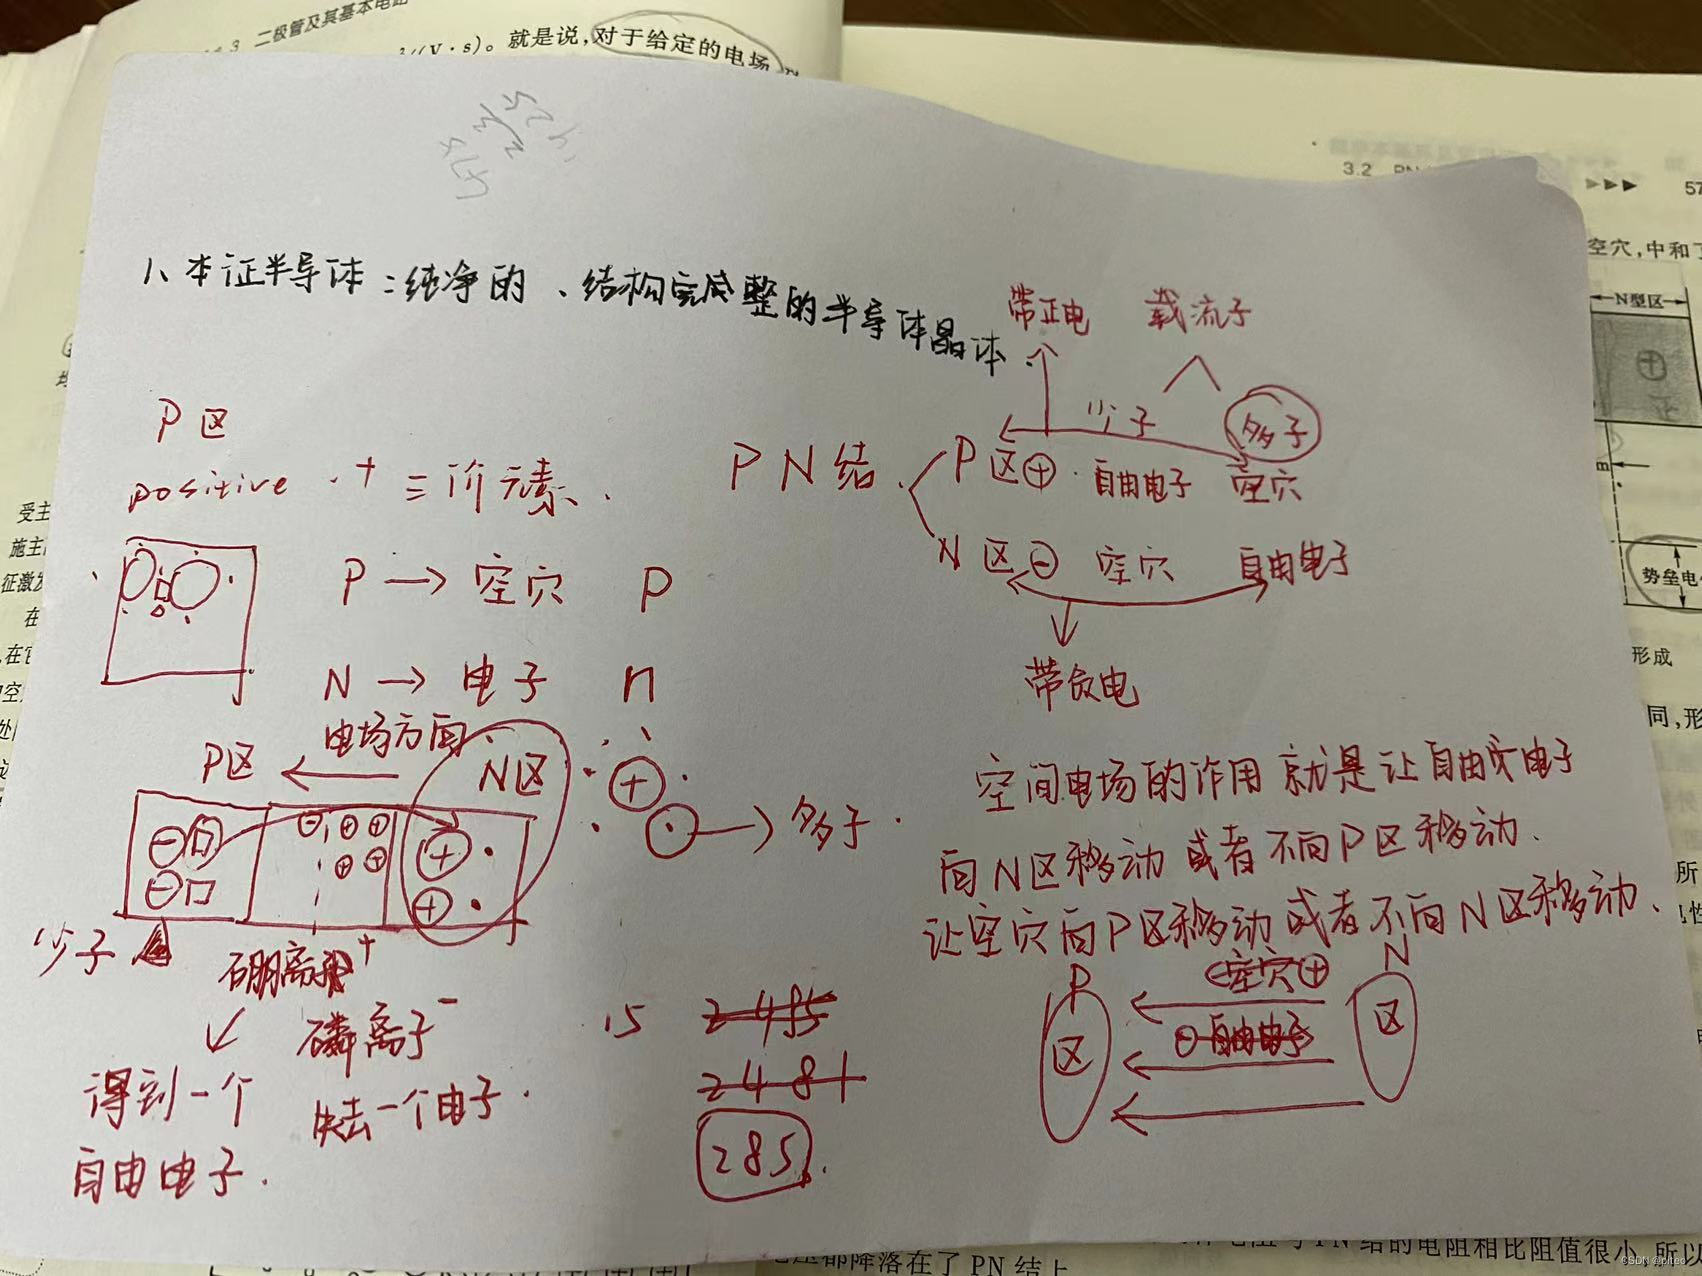 3 二极管及其基本电路
²/(V·s)。就是说,对于给定的电场
3.2 PN
▶▶▶ 57
空穴,中和了
N型区
1、本证半导体:纯净的、结构完整的半导体晶体.
带正电 载流子
少子 多子
P区
positive · + 三价元素.
PN结 P区⊕ · 自由电子 空穴
N区⊖ 空穴 自由电子
带负电
P → 空穴 P
N → 电子 n
电场方向
P区 ← N区
⊕ → 多子.
空间电场的作用就是让自由电子
向N区移动或者不向P区移动.
让空穴向P区移动或者不向N区移动.
少子
硼离子+
磷离子-
得到一个
自由电子.
失去一个电子.
15 2485
2481
285.
P N
空穴⊕
区 区
⊖自由电子
受主
施主
征激发
在
势垒电
形成
同,形
所
PN结的电阻相比阻值很小,所以
压都降落在了PN结上
CSDN @piteo